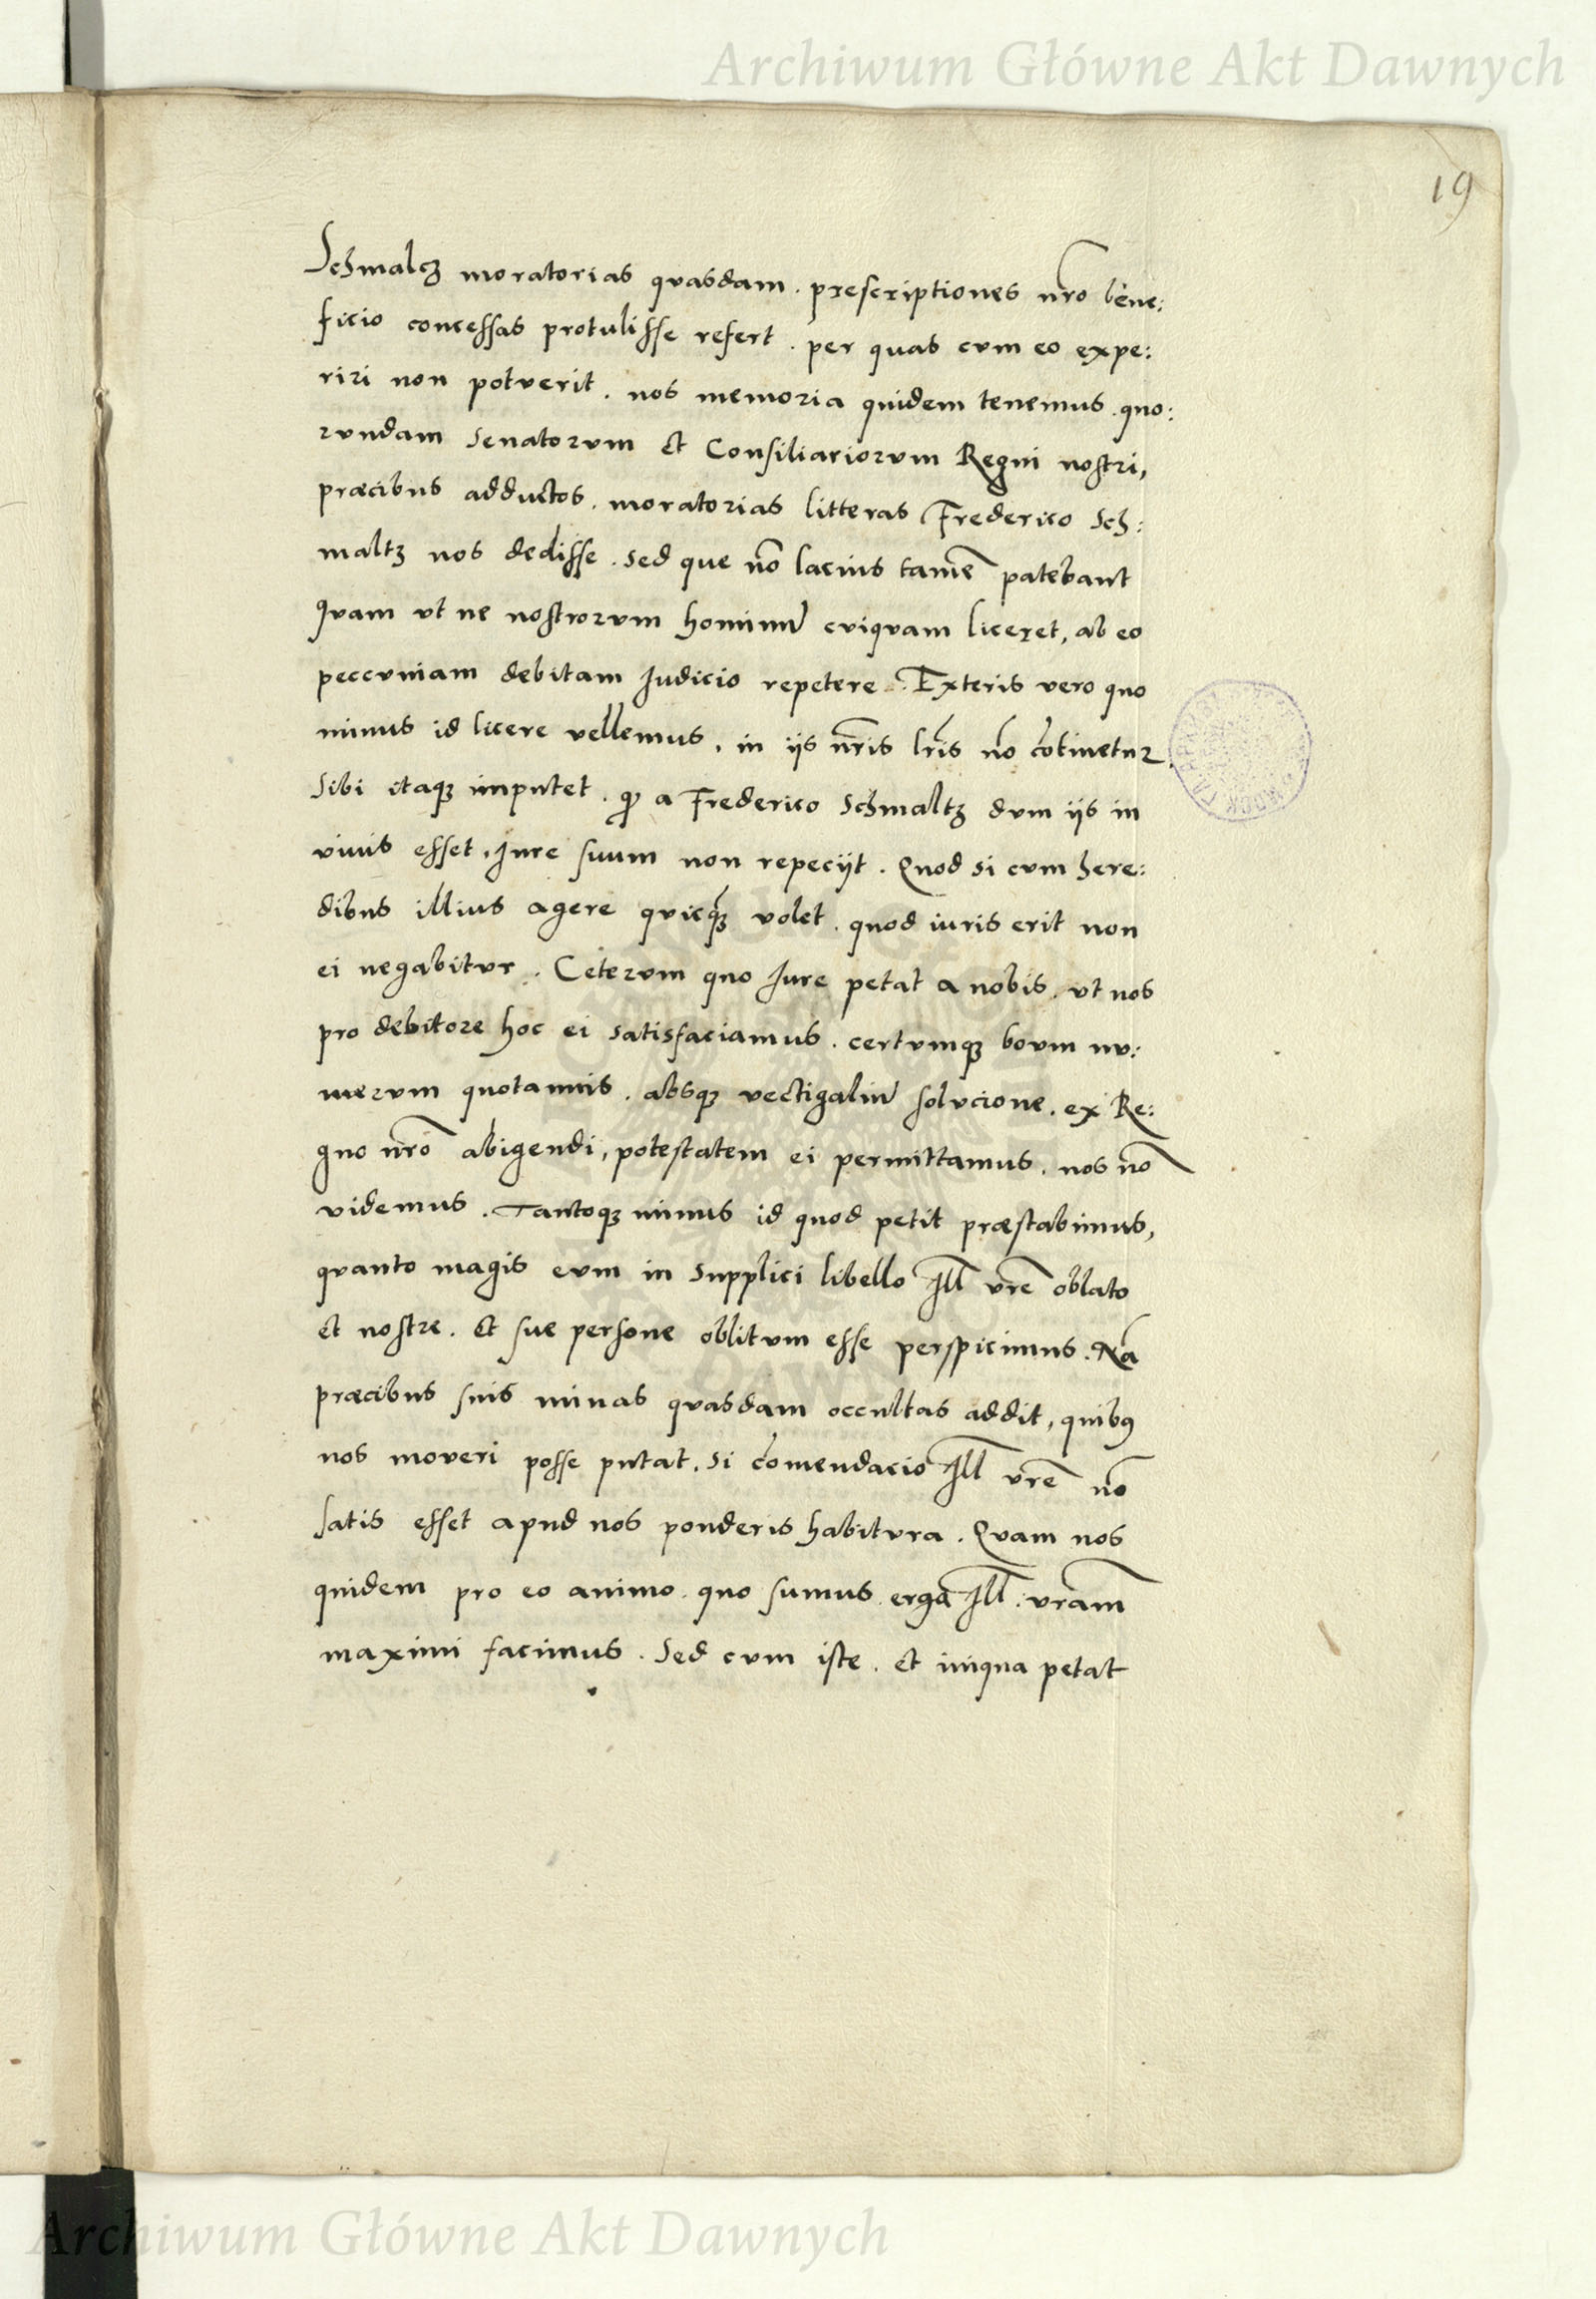 Archiwum Główne Akt Dawnych
19
Schmalcz moratorias quasdam. prescriptiones nro bene:
ficio concessas protulisse refert. per quas cum eo expe:
riri non potuerit. nos memoria quidem tenemus. quo:
rundam Senatorum et Consiliariorum Regni nostri,
præcibus adductos. moratorias litteras Frederico Sch:
maltz nos dedisse. sed que nõ lacius tamẽ patebant
quam vt ne nostrorum hominũ cuiquam liceret, ab eo
peccuniam debitam Iudicio repetere. Exteris vero quo
minus id licere vellemus, in iis nris lris nõ cõtinetur
Sibi itaqꝫ imputet. qꝫ a Frederico Schmaltz dum iis in
viuis esset, Iure suum non repeciit. Quod si cum here:
dibus illius agere quicqꝫ volet. quod iuris erit non
ei negabitur. Ceterum quo Iure petat a nobis. vt nos
pro debitore hoc ei satisfaciamus. certumqꝫ boum nu:
merum quotannis. absqꝫ vectigaliũ solucione. ex Re:
gno nro abigendi, potestatem ei permittamus. nos nõ
videmus. Tantoqꝫ minus id quod petit præstabimus,
quanto magis eum in Supplici libello Ill vre oblato
et nostre. et sue persone oblitum esse perspicimus. Nã
præcibus suis minas quasdam occultas addit, quibꝰ
nos moveri posse putat. si cõmendacio Ill vre nõ
satis esset apud nos ponderis habitura. Quam nos
quidem pro eo animo. quo sumus erga Ill. vram
maximi facimus. Sed cum iste. et iniqua petat
Archiwum Główne Akt Dawnych